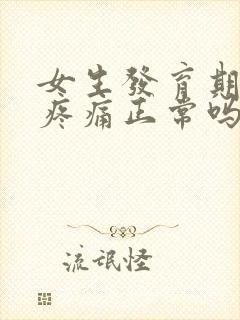 女生發育期
疼痛正常吗
流氓怪